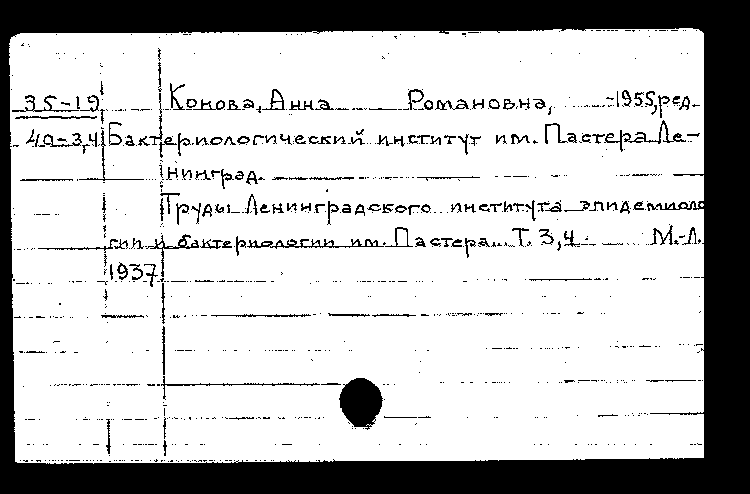 35-19 Конова, Анна Романовна, -1955, ред.
40-3,4 Бактериологический институт им. Пастера Ле-
нинград.
Труды Ленинградского института эпидемиоло
гии и бактериологии им. Пастера... Т. 3,4. М.-Л.
1937